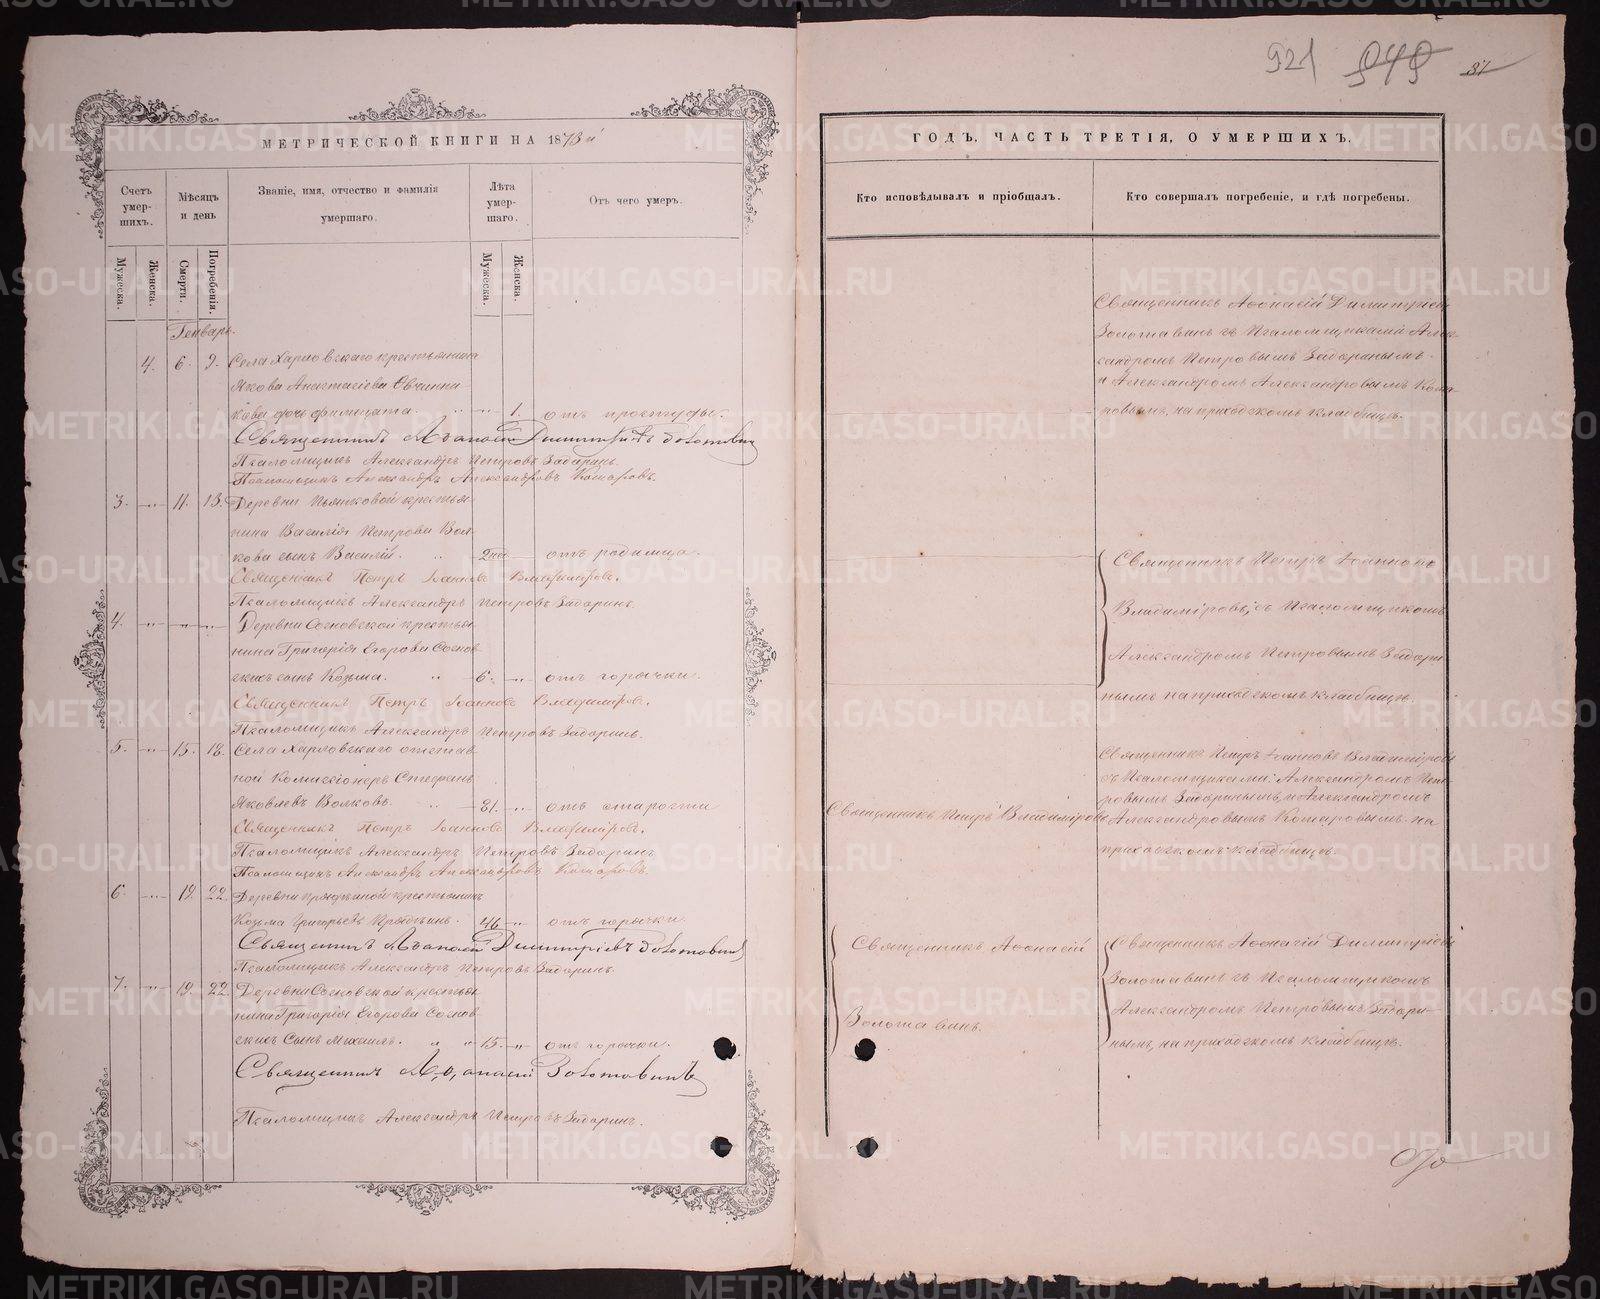 МЕТРИЧЕСКОЙ КНИГИ НА 1873 й
Счетъ умер-шихъ.
Мѣсяцъ и день
Званіе, имя, отчество и фамилія умершаго.
Лѣта умер-шаго.
Отъ чего умеръ.
Мужеска.
Женска.
Смерти.
Погребенія.
Мужеска.
Женска.
Генварь.
4. 6. 9. Села Харловскаго крестьянина
Якова Анастасіева Овчинни
кова дочь 1. отъ простуды.
Священникъ Димитріевъ Золотавинъ
Псаломщикъ Александръ Петровъ Задоринъ.
Псаломщикъ Александръ Александровъ Комаровъ.
3. „ 11. 13. Деревни крестья
нина Василія Петрова Вол
кова сынъ Василій. 2 мес. отъ родимца.
Священникъ Петръ Іоанновъ Владиміровъ.
Псаломщикъ Александръ Петровъ Задоринъ.
4. „ „ „ Деревни Сосновской крестья
нина Григорія Егорова Соснов
скихъ сынъ Козьма. 6. „ отъ горячки.
Священникъ Петръ Іоанновъ Владиміровъ.
Псаломщикъ Александръ Петровъ Задоринъ.
5. „ 15. 18. Села Харловскаго отстав
ной Коммисіонеръ Стефанъ
Яковлевъ Волковъ. 81. „ отъ старости
Священникъ Петръ Іоанновъ Владиміровъ.
Псаломщикъ Александръ Петровъ Задоринъ
Псаломщикъ Александръ Александровъ Комаровъ.
6. „ 19. 22. Деревни крестьянинъ
Козьма Григорьевъ 46 „ отъ горячки.
Священникъ Димитріевъ Золотавинъ
Псаломщикъ Александръ Петровъ Задоринъ.
7. „ 19. 22. Деревни Сосновской крестья
нина Григорія Егорова Соснов
скихъ Сынъ Михаилъ. „ „ 15. „ отъ горячки.
Священникъ Золотавинъ
Псаломщикъ Александръ Петровъ Задоринъ.
921 949 87
ГОДЪ, ЧАСТЬ ТРЕТІЯ, О УМЕРШИХЪ.
Кто исповѣдывалъ и пріобщалъ.
Кто совершалъ погребеніе, и гдѣ погребены.
Священникъ Аѳонасій Димитріевъ
Золотавинъ съ Псаломщиками Алек
сандромъ Петровымъ Задоринымъ
и Александромъ Александровымъ Кома
ровымъ, на приходскомъ кладбищѣ.
Священникъ Петръ Іоанновъ
Владиміровъ, съ Псаломщикомъ
Александромъ Петровымъ Задори
нымъ на приходскомъ кладбищѣ.
Священникъ Петръ Владиміровъ
Священникъ Петръ Іоанновъ Владиміровъ
съ Псаломщиками: Александромъ Пет
ровымъ Задоринымъ, и Александромъ
Александровымъ Комаровымъ на
приходскомъ кладбищѣ.
Священникъ Аѳонасій
Золотавинъ.
Священникъ Аѳонасій Димитріевъ
Золотавинъ съ Псаломщикомъ
Александромъ Петровымъ Задори-
нымъ, на приходскомъ кладбищѣ.
METRIKI.GASO-URAL.RU